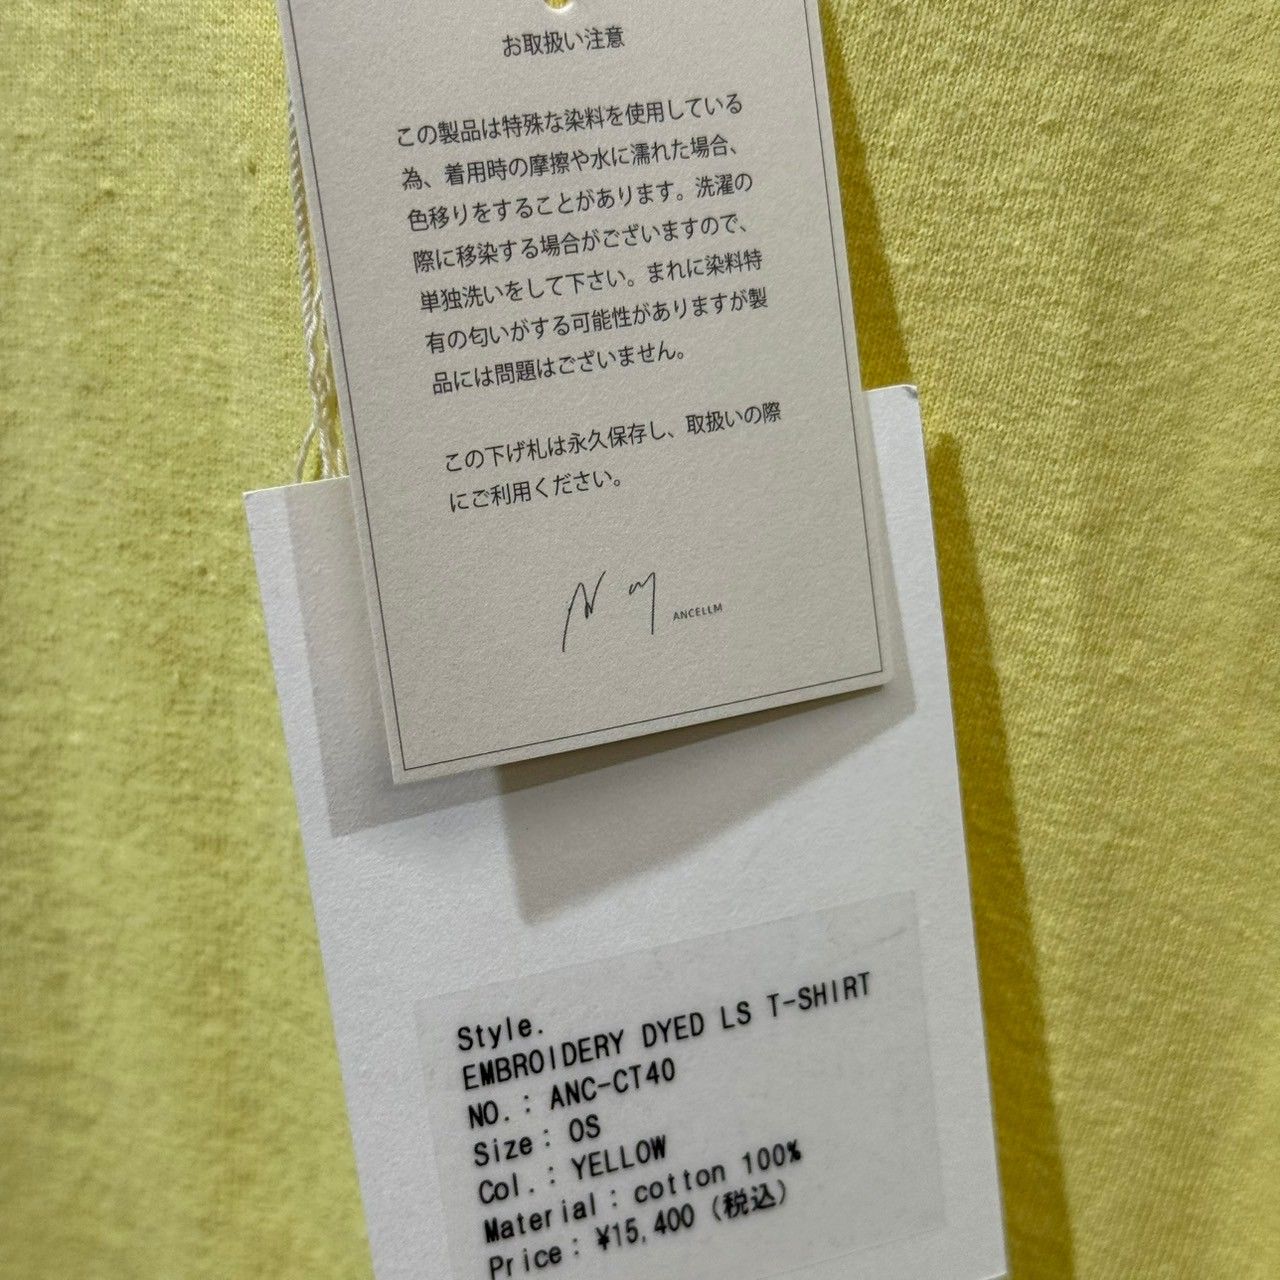 お取扱い注意
この製品は特殊な染料を使用している
為、着用時の摩擦や水に濡れた場合、
色移りをすることがあります。洗濯の
際に移染する場合がございますので、
単独洗いをして下さい。まれに染料特
有の匂いがする可能性がありますが製
品には問題はございません。
この下げ札は永久保存し、取扱いの際
にご利用ください。
ANCELLM
Style.
EMBROIDERY DYED LS T-SHIRT
NO.: ANC-CT40
Size: OS
Col.: YELLOW
Material: cotton 100%
Price: ¥15,400 (税込)